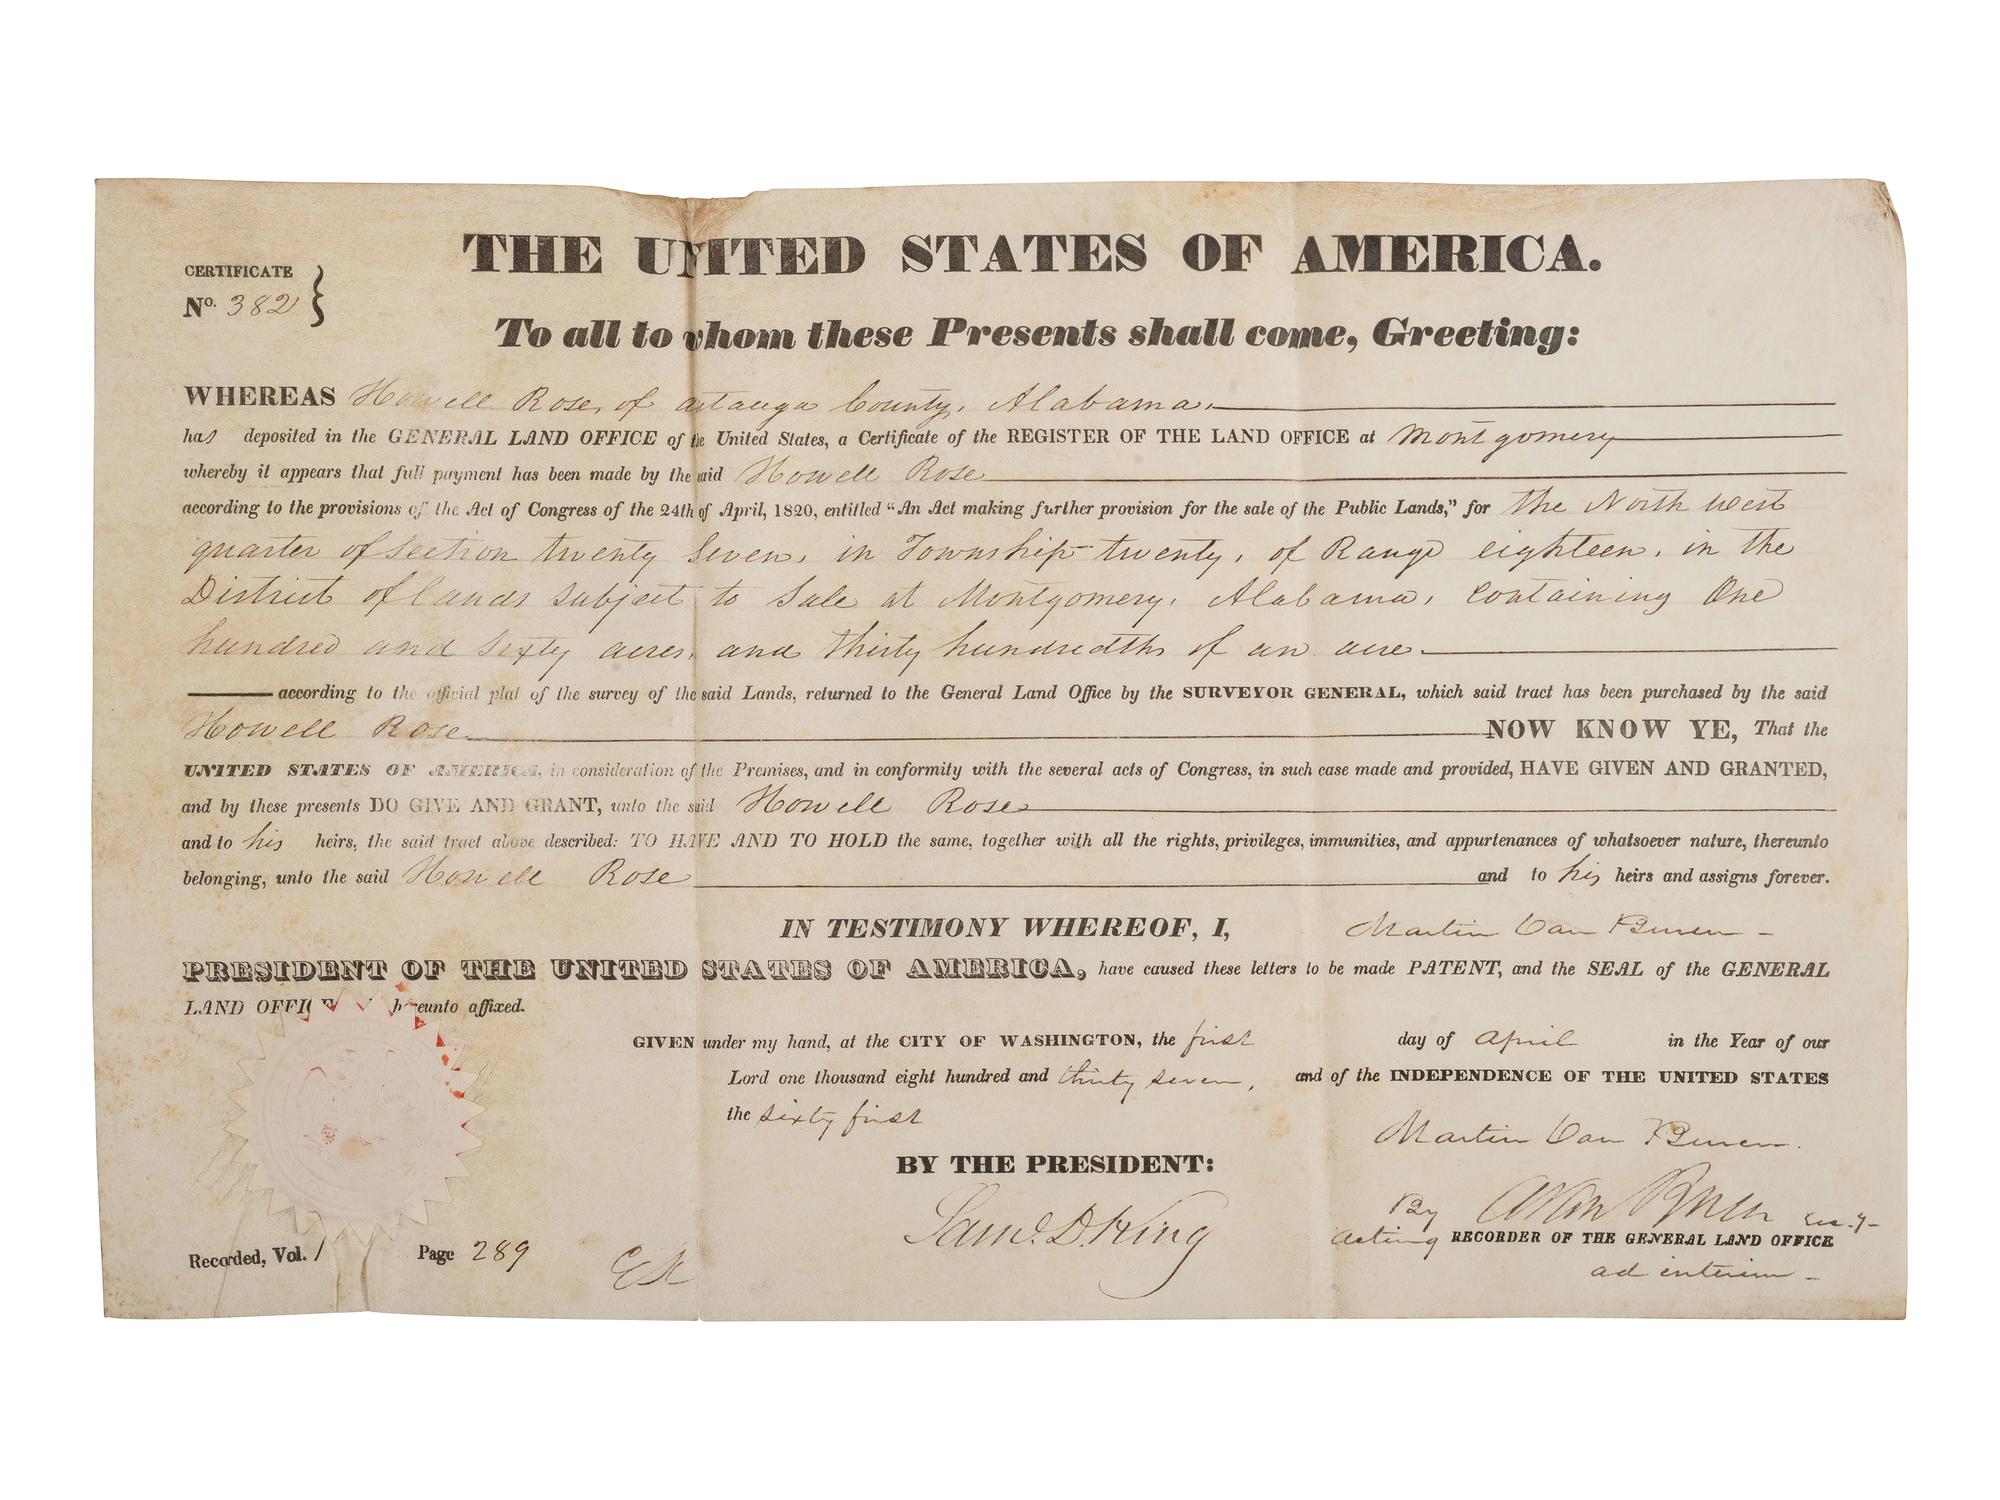 THE UNITED STATES OF AMERICA.
CERTIFICATE
No. 382
To all to whom these Presents shall come, Greeting:
WHEREAS Howell Rose, of Autauga County, Alabama,
has deposited in the GENERAL LAND OFFICE of the United States, a Certificate of the REGISTER OF THE LAND OFFICE at Montgomery
whereby it appears that full payment has been made by the said Howell Rose
according to the provisions of the Act of Congress of the 24th of April, 1820, entitled "An Act making further provision for the sale of the Public Lands," for the North West
quarter of Section twenty Seven, in Township twenty, of Range eighteen, in the
District of lands subject to Sale at Montgomery, Alabama, containing One
hundred and sixty acres, and thirty hundredths of an acre
according to the official plat of the survey of the said Lands, returned to the General Land Office by the SURVEYOR GENERAL, which said tract has been purchased by the said
Howell Rose NOW KNOW YE, That the
UNITED STATES OF AMERICA, in consideration of the Premises, and in conformity with the several acts of Congress, in such case made and provided, HAVE GIVEN AND GRANTED,
and by these presents DO GIVE AND GRANT, unto the said Howell Rose
and to his heirs, the said tract above described: TO HAVE AND TO HOLD the same, together with all the rights, privileges, immunities, and appurtenances of whatsoever nature, thereunto
belonging, unto the said Howell Rose and to his heirs and assigns forever.
IN TESTIMONY WHEREOF, I, Martin Van Buren
PRESIDENT OF THE UNITED STATES OF AMERICA, have caused these letters to be made PATENT, and the SEAL of the GENERAL
LAND OFFICE hereunto affixed.
GIVEN under my hand, at the CITY OF WASHINGTON, the first day of April in the Year of our
Lord one thousand eight hundred and thirty seven, and of the INDEPENDENCE OF THE UNITED STATES
the sixty first
Martin Van Buren.
BY THE PRESIDENT:
By Sec.y
Saml. D. King
acting RECORDER OF THE GENERAL LAND OFFICE
ad interim
Recorded, Vol. 1 Page 289